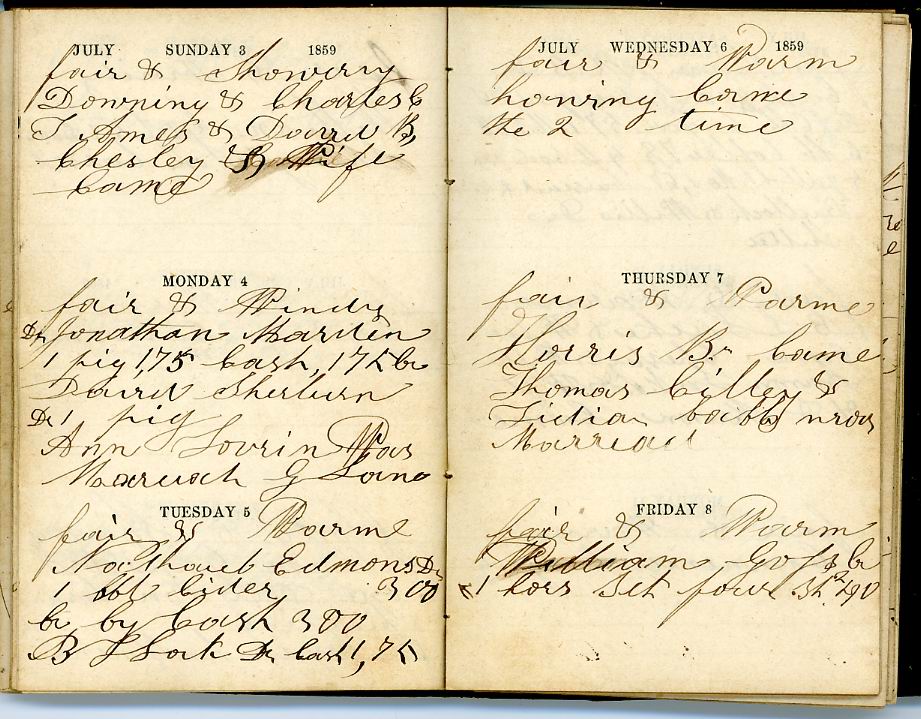 JULY SUNDAY 3 1859
fair & Showerry
Downing & Charles C
T Ames & David B,
Chesley & Wife
Came
MONDAY 4
fair & Windy
Dr Jonathan Marden
1 pig 1,75 Cash, 175 Cr
David Sherburn
Dr 1 pig
Ann Lovrin Was
G Lane
TUESDAY 5
fair & Warme
Nathael Edmons Dr
1 bbl Cider 3 00
Cr by Cash 3 00
B Lock Dr Cash 1,75
JULY WEDNESDAY 6 1859
fair & Warm
honring Came
the 2 time
THURSDAY 7
fair & Warme
Horris Br Came
Thomas Cilley &
Marread
FRIDAY 8
fair & Warm
William Goss Cr
1 hors Set four Sh 90